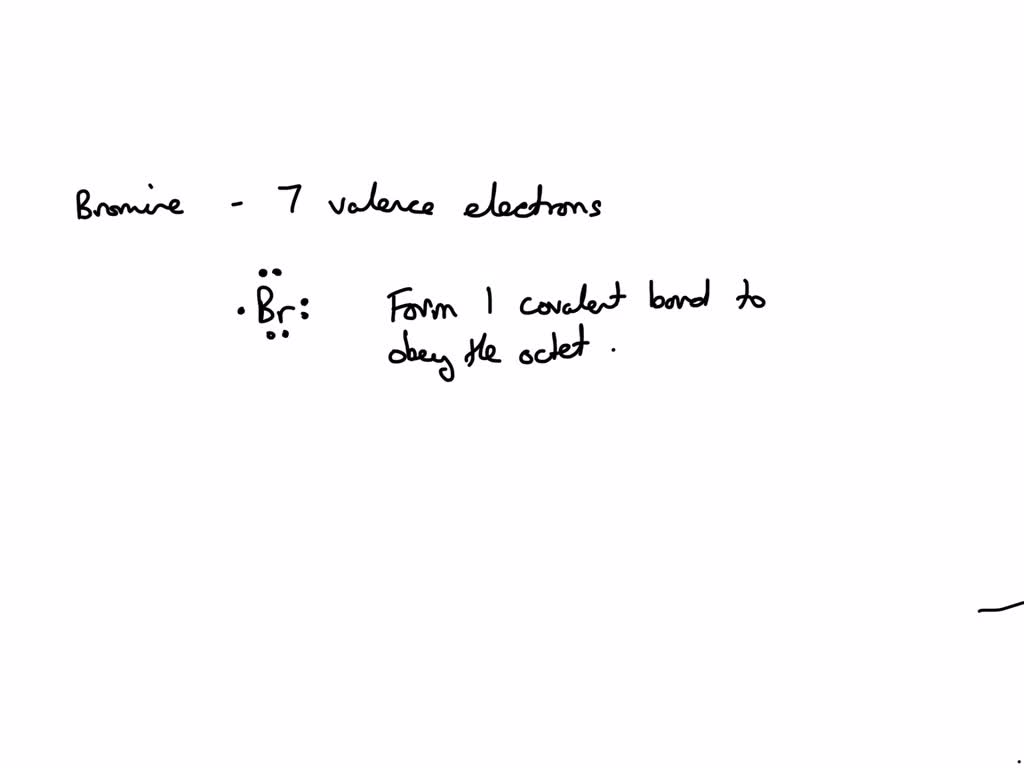 Bromine - 7 valence electrons
Br Form 1 covalent bond to
obey the octet.